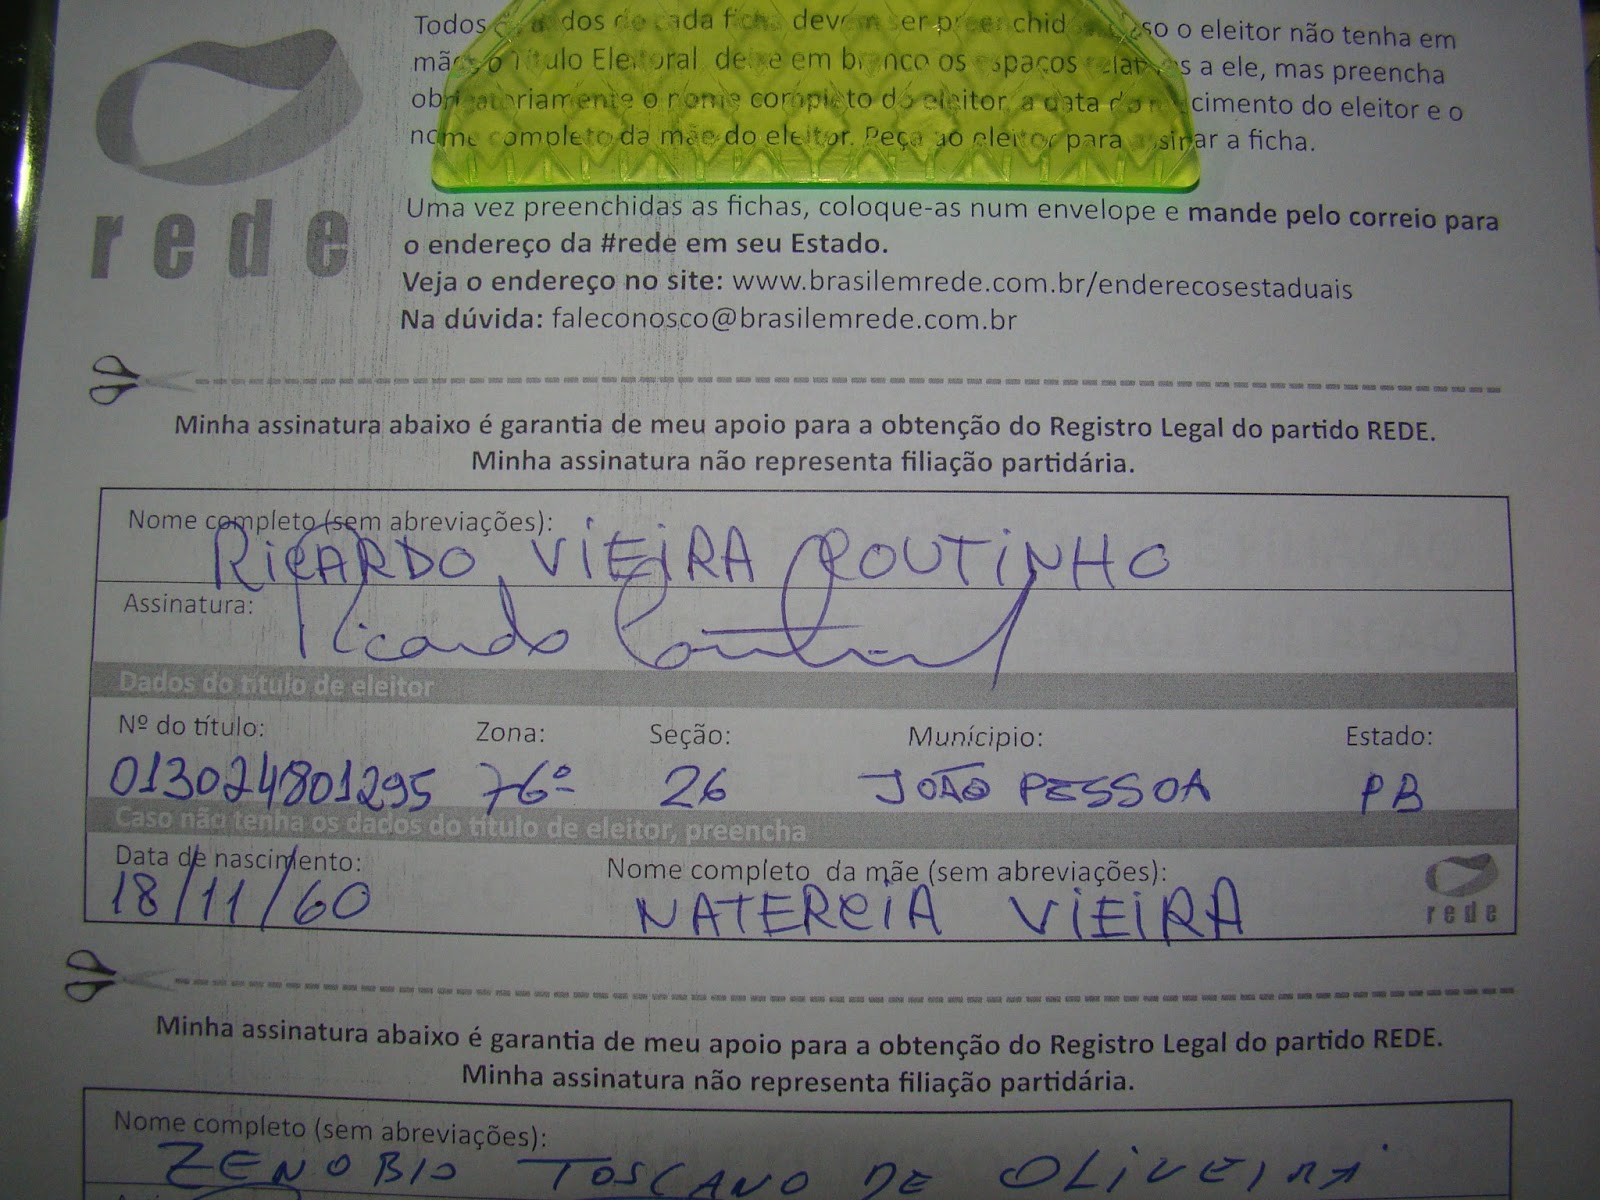 Todos os dados de cada ficha devem ser preenchidos. Caso o eleitor não tenha em
mãos o Título Eleitoral, deixe em branco os espaços relativos a ele, mas preencha
obrigatoriamente o nome completo do eleitor, a data do nascimento do eleitor e o
nome completo da mãe do eleitor. Peça ao eleitor para assinar a ficha.
rede
Uma vez preenchidas as fichas, coloque-as num envelope e mande pelo correio para
o endereço da #rede em seu Estado.
Veja o endereço no site: www.brasilemrede.com.br/enderecosestaduais
Na dúvida: faleconosco@brasilemrede.com.br
Minha assinatura abaixo é garantia de meu apoio para a obtenção do Registro Legal do partido REDE.
Minha assinatura não representa filiação partidária.
Nome completo (sem abreviações):
RICARDO VIEIRA COUTINHO
Assinatura: Ricardo Coutinho
Dados do título de eleitor
Nº do título: Zona: Seção: Munícipio: Estado:
013024801295 76º 26 JOÃO PESSOA PB
Caso não tenha os dados do título de eleitor, preencha
Data de nascimento: Nome completo da mãe (sem abreviações):
18/11/60 NATERCIA VIEIRA
rede
Minha assinatura abaixo é garantia de meu apoio para a obtenção do Registro Legal do partido REDE.
Minha assinatura não representa filiação partidária.
Nome completo (sem abreviações):
ZENOBIO TOSCANO DE OLIVEIRA